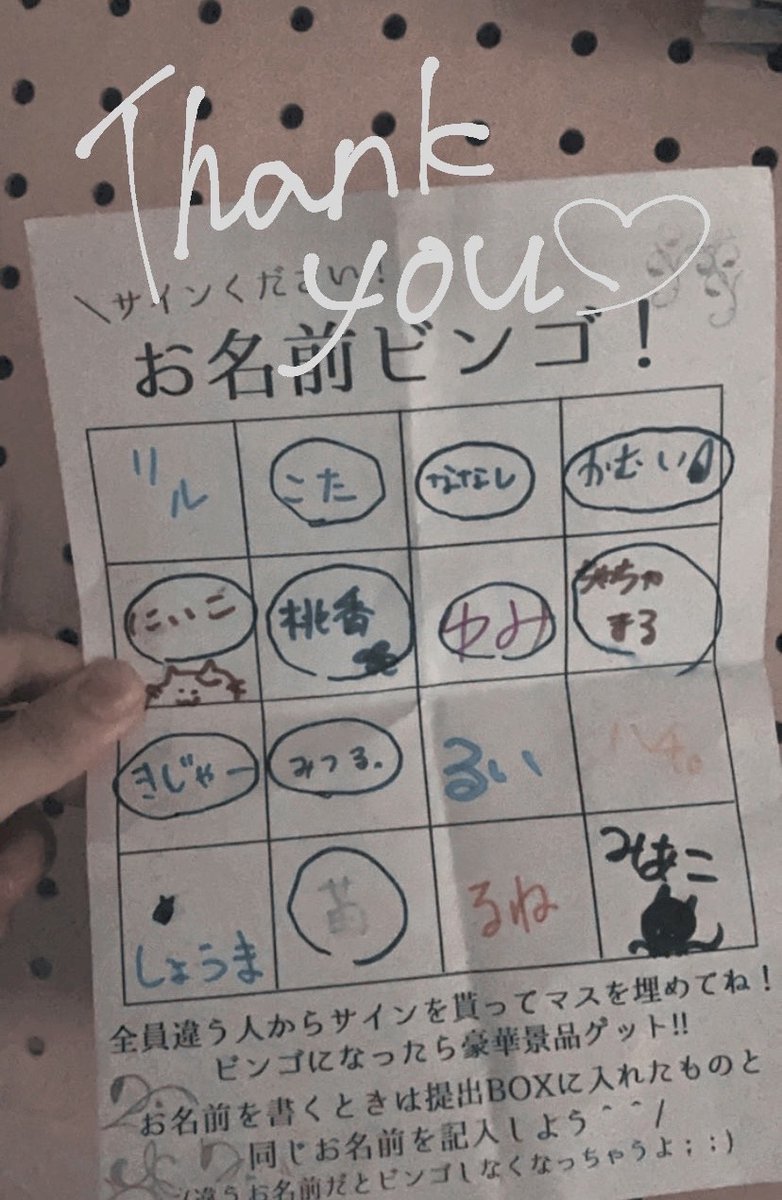 Thank
you
\サインください!
お名前ビンゴ!
リル
こた
ななし
かむい
にいご
桃香
ゆみ
ちゃちゃ
まる
きじゃー
みつる。
るい
ハチ。
しょうま
るね
みあこ
全員違う人からサインを貰ってマスを埋めてね!
ビンゴになったら豪華景品ゲット!!
お名前を書くときは提出BOXに入れたものと
同じお名前を記入しよう^ ^/
違うお名前だとビンゴしなくなっちゃうよ; ;)